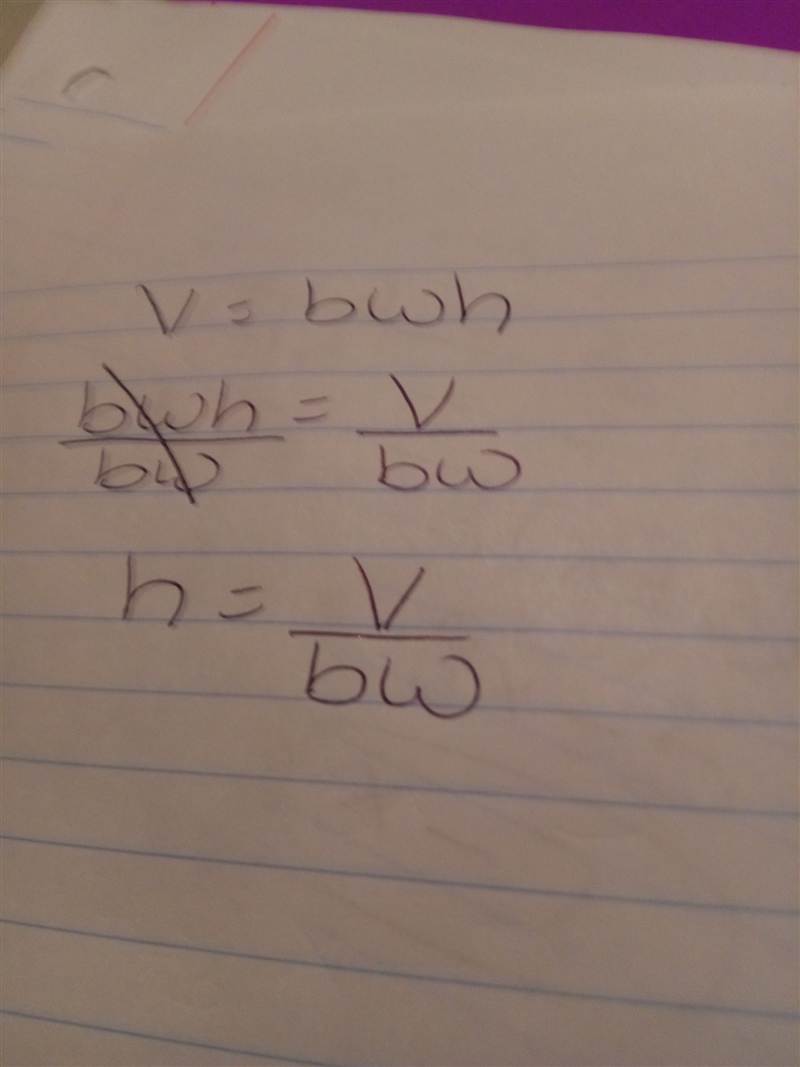 V = bwh
bwh/bw = V/bw
h = V/bw